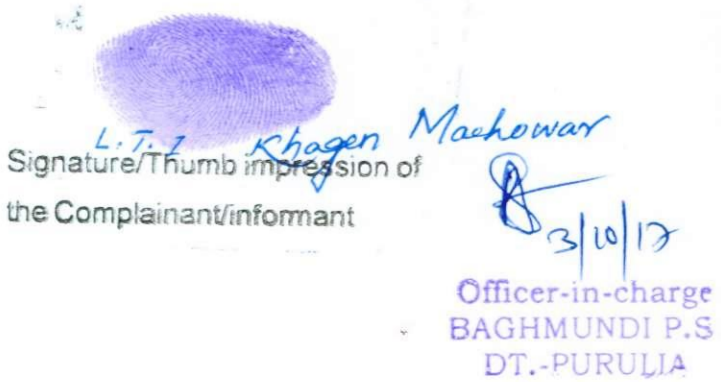 L.T.I Khagen Machowar
Signature/Thumb impression of
the Complainant/informant
3/10/17
Officer-in-charge
BAGHMUNDI P.S
DT.-PURULIA